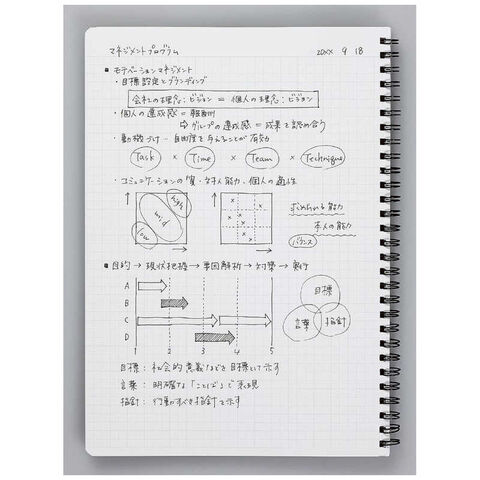 マネジメントプログラム 20XX 9 18
■ モチベーションマネジメント
・目標設定とブランディング
会社の理念:ビジョン = 個人の理念:ビジョン
・個人の達成感 = 報酬
⇨ グループの達成感 = 成果を認め合う
・動機づけ — 自由度を与えることが有効
Task × Time × Team × Technique
・コミュニケーションの質・対人能力、個人の適性
high
mid
low
× × × × × ×
求められる能力
本人の能力
バランス
■ 目的 → 現状把握 → 要因解析 → 対策 → 実行
A
B
C
D
1 2 3 4 5
目標
言葉 指針
目標: 社会的意義などを目標として示す
言葉: 明確な「ことば」で表現
指針: 行動すべき指針を示す